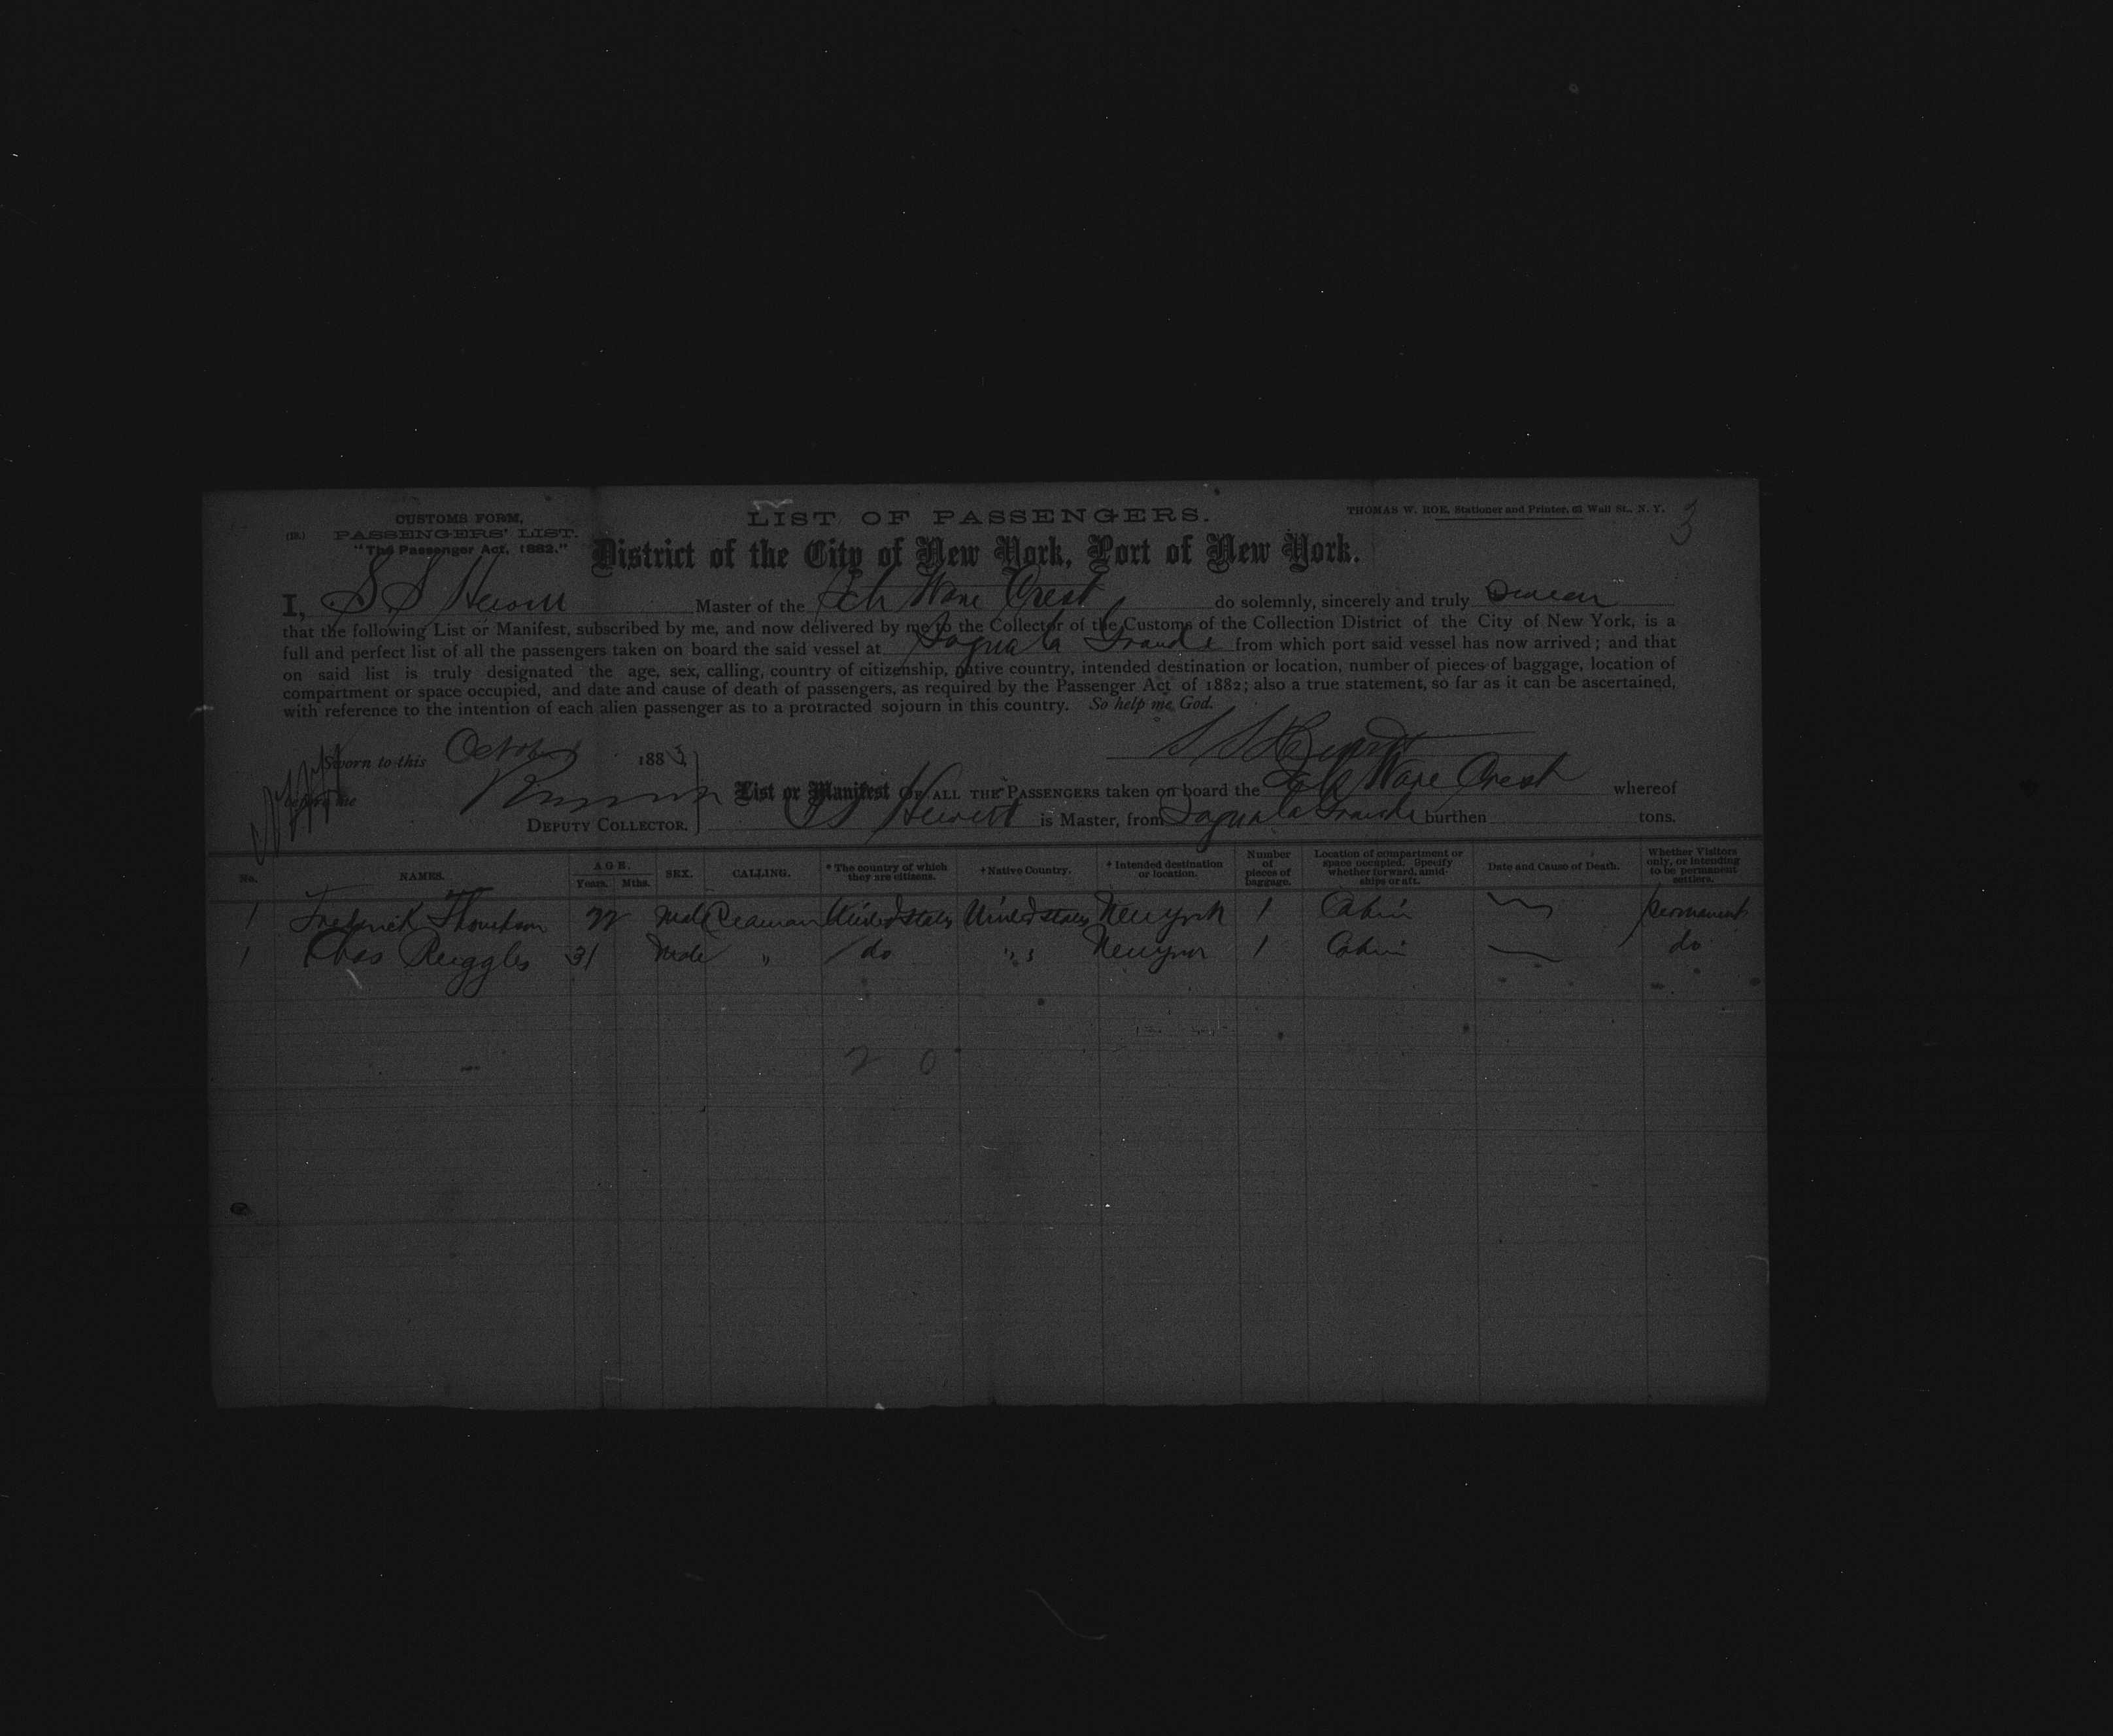 CUSTOMS FORM,
(12.) PASSENGERS' LIST.
"The Passenger Act, 1882."
LIST OF PASSENGERS.
THOMAS W. ROE, Stationer and Printer, 63 Wall St., N. Y.
3
District of the City of New York, Port of New York.
I, S S Hewitt Master of the Sch Wave Crest do solemnly, sincerely and truly swear
that the following List or Manifest, subscribed by me, and now delivered by me to the Collector of the Customs of the Collection District of the City of New York, is a
full and perfect list of all the passengers taken on board the said vessel at Sagua la Grande from which port said vessel has now arrived; and that
on said list is truly designated the age, sex, calling, country of citizenship, native country, intended destination or location, number of pieces of baggage, location of
compartment or space occupied, and date and cause of death of passengers, as required by the Passenger Act of 1882; also a true statement, so far as it can be ascertained,
with reference to the intention of each alien passenger as to a protracted sojourn in this country. So help me God.
Sworn to this October 1883
S S Hewitt
before me
List or Manifest OF ALL THE PASSENGERS taken on board the Sch Wave Crest whereof
DEPUTY COLLECTOR.
S S Hewitt is Master, from Sagua la Grande burthen tons.
No. NAMES. AGE. Years. Mths. SEX. CALLING. * The country of which they are citizens. + Native Country. + Intended destination or location. Number of pieces of baggage. Location of compartment or space occupied. Specify whether forward, amidships or aft. Date and Cause of Death. Whether Visitors only, or intending to be permanent settlers.
1 Frederick Thompson 22 Male Seaman United States United States New York 1 Cabin — permanent
1 Chas Ruggles 31 Male " do " New York 1 Cabin — do
2 0